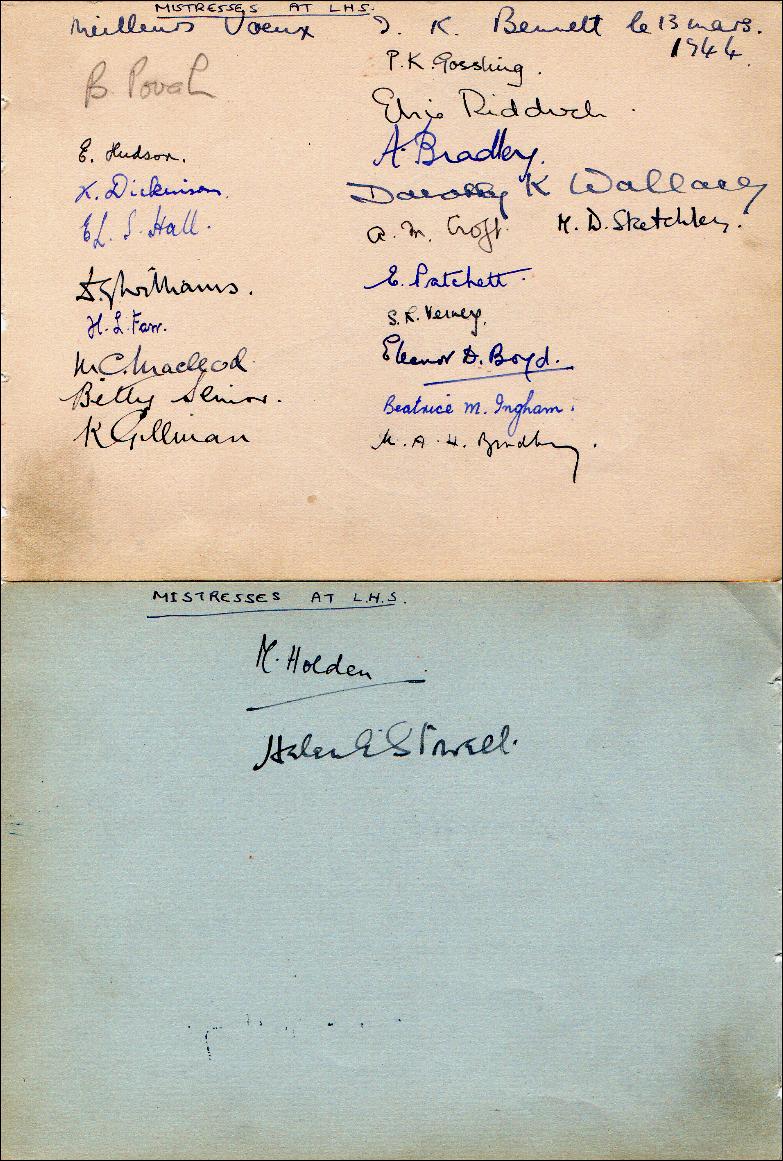 MISTRESSES AT L.H.S.
Meilleurs Voeux J. K. Bennett le 13 mars.
1944.
P. K. Gossling.
B. Povah
Elsie Riddoch.
E. Hudson.
A. Bradley.
K. Dickinson.
Dorothy K Wallace
E L. S. Hall.
A. M. Croft.
M. D. Sketchley.
Williams.
E. Patchett.
H. L. Farr.
S. R. Verney.
M C. Macleod
Eleanor D. Boyd.
Betty Senior.
Beatrice M. Ingham.
K Gillman
M. A. H. Bradbury.
MISTRESSES AT L.H.S.
M. Holden
Helen E Stowell.